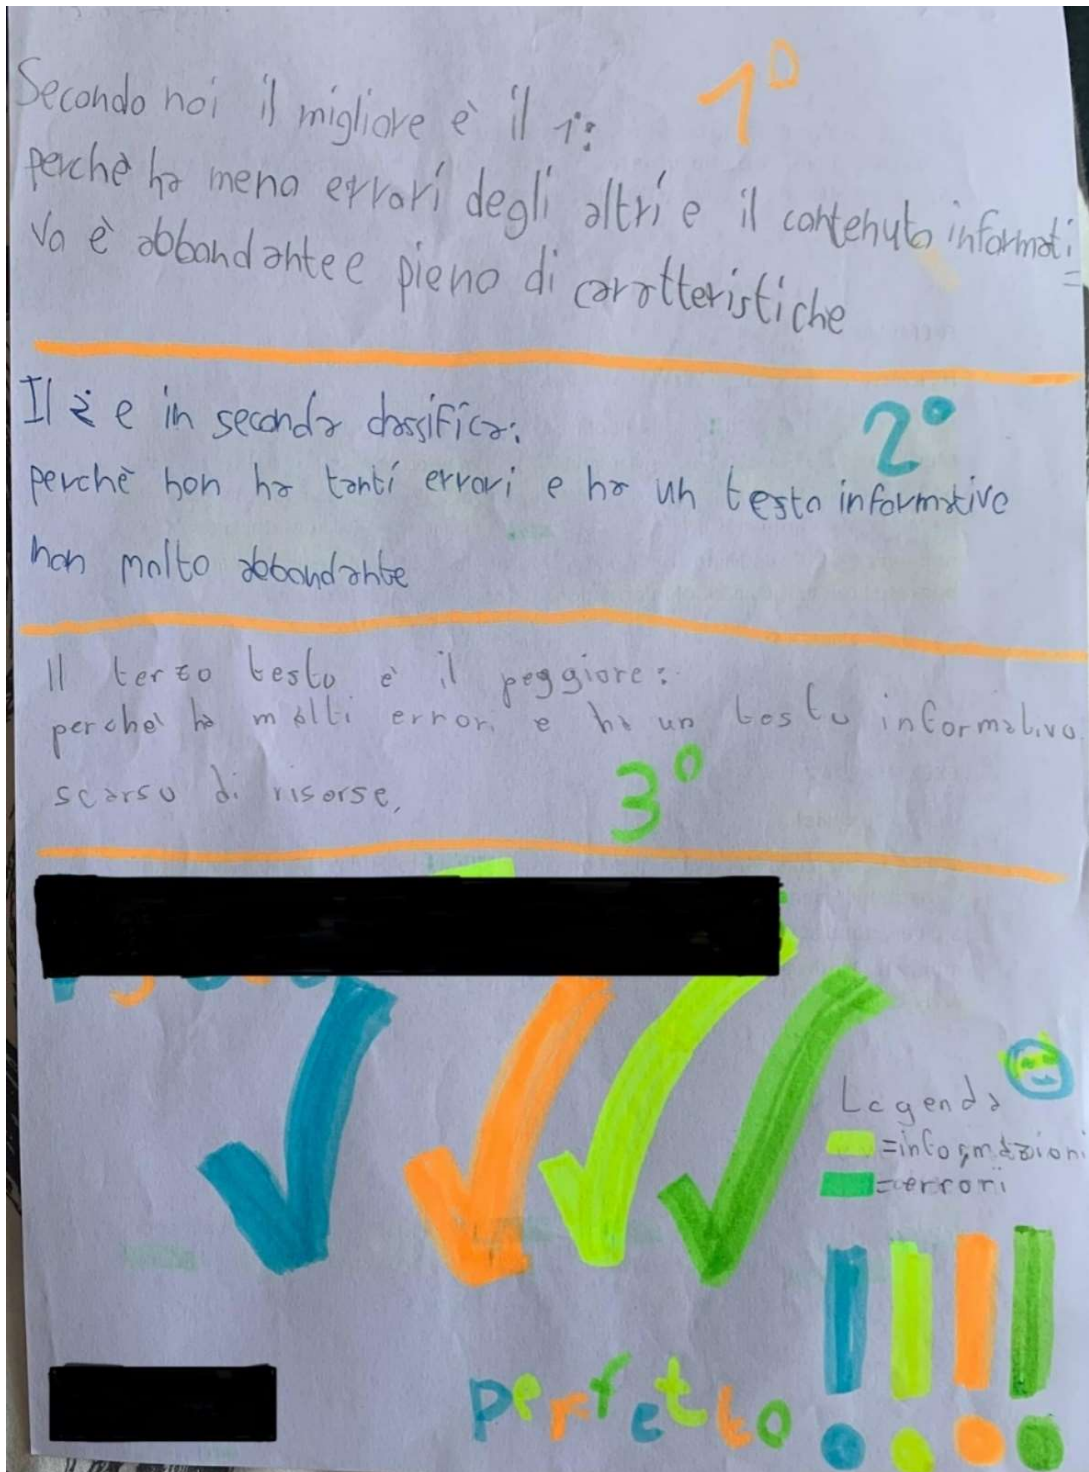 Secondo noi il migliore è il 1: 1°
perchè ha meno errori degli altri e il contenuto informati=
vo è abbondante e pieno di caratteristiche
Il 2 e in seconda classifica: 2°
perchè non ha tanti errori e ha un testo informativo
non molto abbondante
Il terzo testo è il peggiore:
perchè ha molti errori e ha un testo informativo
scarso di risorse, 3°
Legenda
=informazioni
=errori
perfetto !!!!